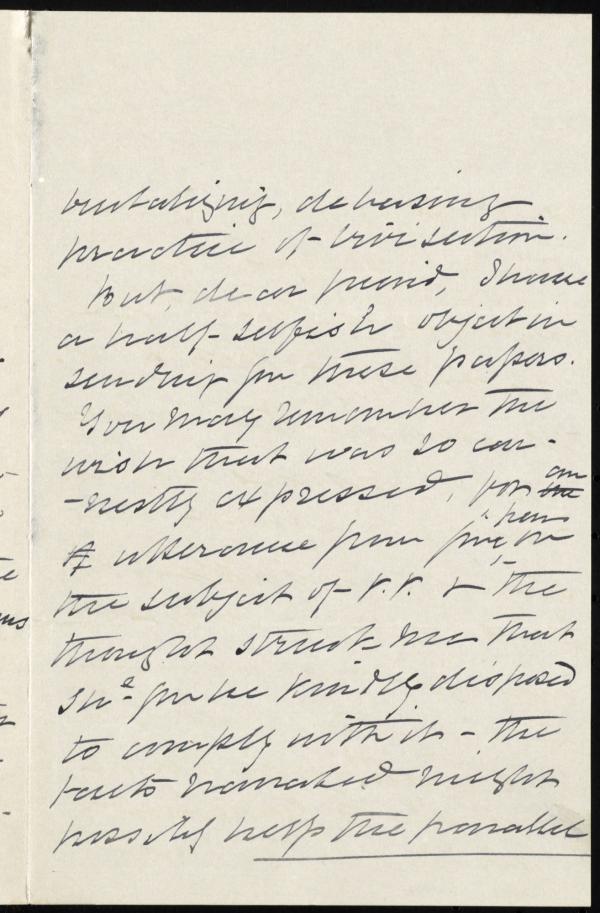 brutalizing, debasing
practice of vivisection.
But, dear friend, I have
a half-selfish object in
sending you these papers.
You may remember the
wish that was so ear-
-nestly expressed, for an
utterance from your pen, on
the subject of V.V. & the
thought struck me that
shd you be kindly disposed
to comply with it - the
facts narrated might
possibly help the parallel